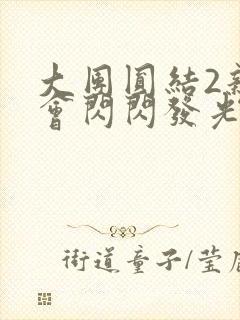 大團圓結2
會閃閃發光
街道童子/莹